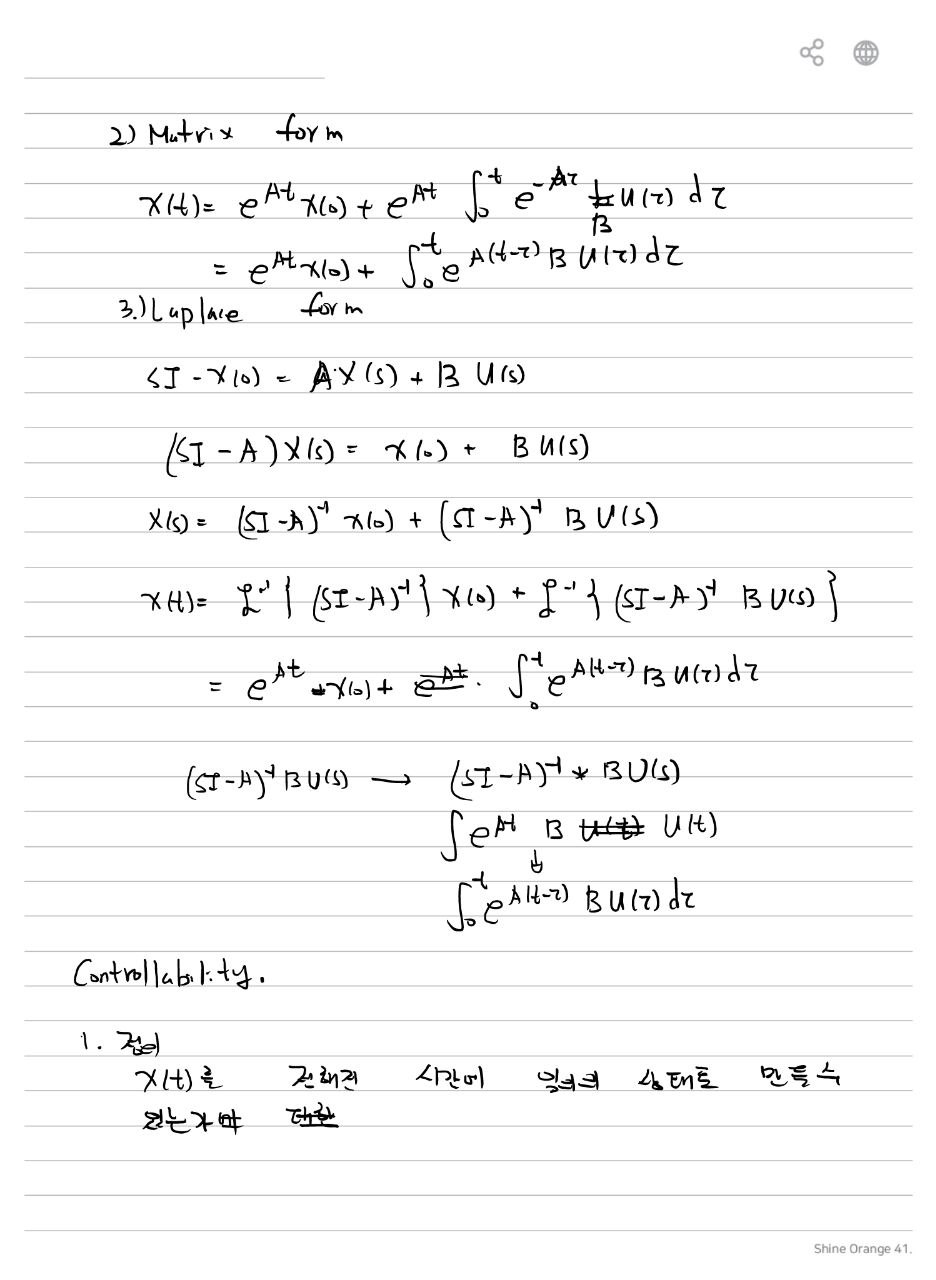 2) Matrix form
x(t) = e^{At} x(0) + e^{At} ∫_0^t e^{-Aτ} B u(τ) dτ
= e^{At} x(0) + ∫_0^t e^{A(t-τ)} B u(τ) dτ
3.) Laplace form
SI - x(0) = A X(s) + B U(s)
(SI - A) X(s) = x(0) + B U(s)
X(s) = (SI-A)^{-1} x(0) + (SI-A)^{-1} B U(s)
x(t) = ℒ^{-1} { (SI-A)^{-1} } x(0) + ℒ^{-1} { (SI-A)^{-1} B U(s) }
= e^{At} x(0) + e^{At} · ∫_0^t e^{A(t-τ)} B u(τ) dτ
(SI-A)^{-1} B U(s) → (SI-A)^{-1} * B U(s)
∫ e^{At} B u(t) u(t)
↓
∫_0^t e^{A(t-τ)} B u(τ) dτ
Controllability.
1. 정의
x(t)를 정해진 시간에 임의의 상태로 만들 수
있는가에 대한
Shine Orange 41.